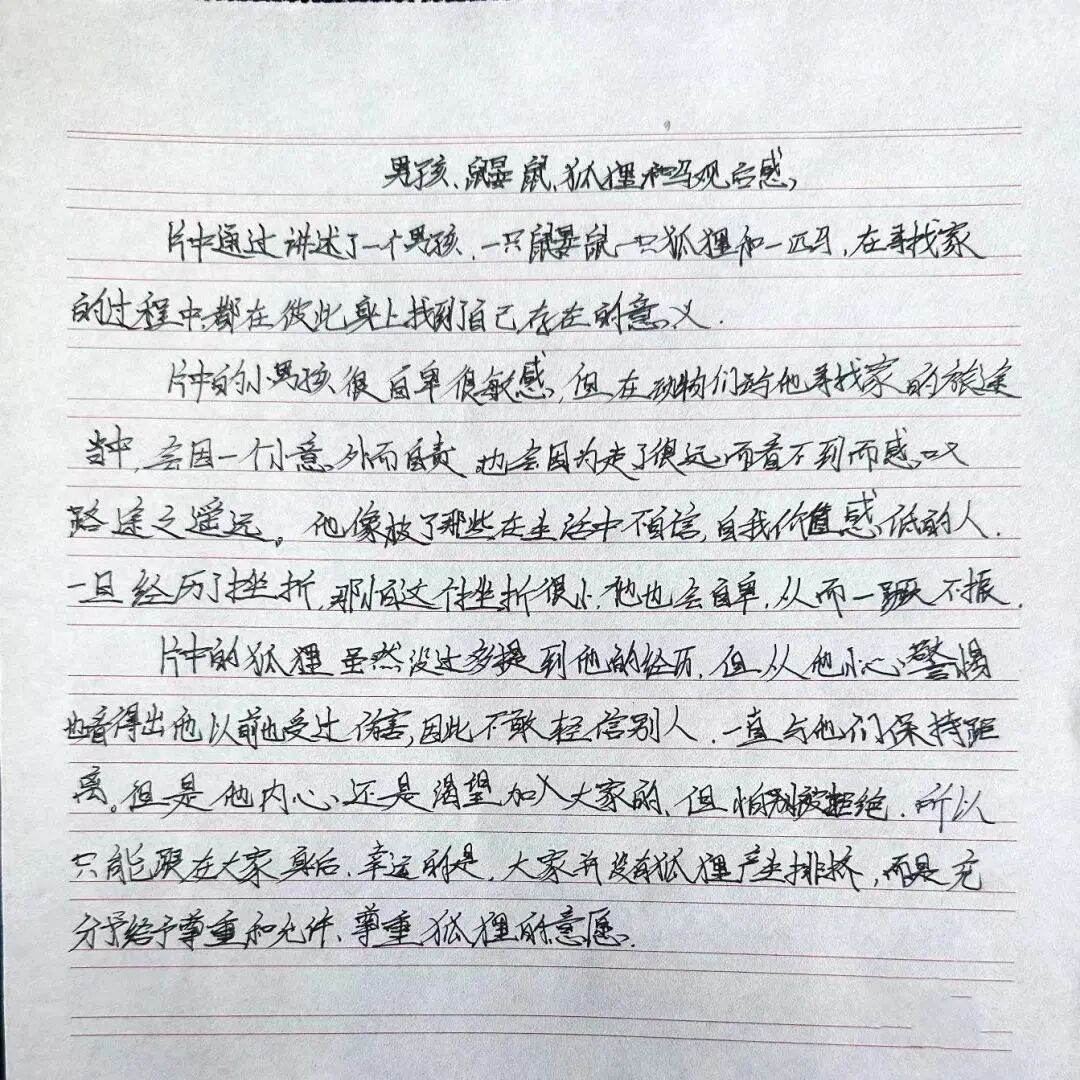 男孩、鼹鼠、狐狸和马观后感
片中通过讲述了一个男孩,一只鼹鼠一只狐狸和一匹马,在寻找家
的过程中,都在彼此身上找到了自己存在的意义.
片中的小男孩很自卑很敏感,但在动物们与他寻找家的旅途
当中,会因一个小意外而自责,也会因为走了很远而看不到而感叹
路途之遥远。他像极了那些在生活中不自信,自我价值感低的人.
一旦经历了挫折,那怕这件挫折很小,他也会自卑,从而一蹶不振.
片中的狐狸虽然没过多提到他的经历,但从他小心、警惕
也看得出他以前也受过伤害,因此不敢轻信别人.一直与他们保持距
离。但是他内心还是渴望加入大家的,但怕被拒绝.所以
只能跟在大家身后.幸运的是,大家并没有狐狸产生排挤,而是充
分予给予尊重和允许、尊重狐狸的意愿.